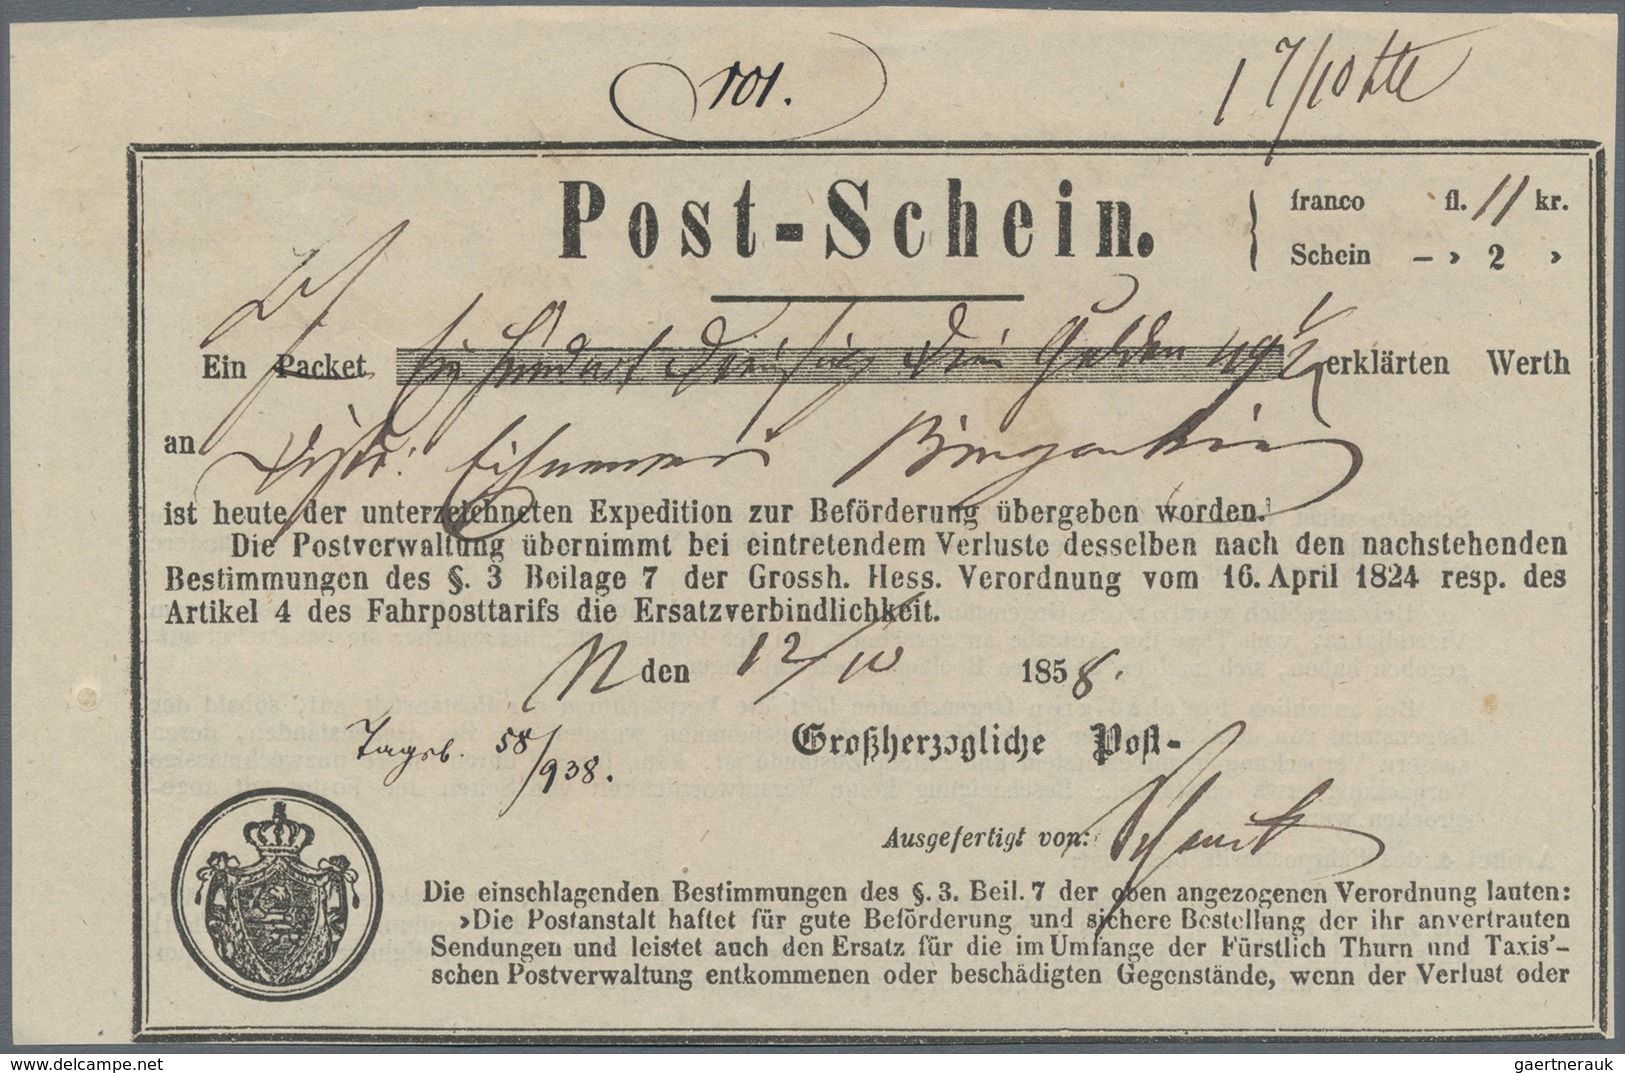 101.
17/10
Post-Schein.
franco fl. 11 kr.
Schein – » 2 »
Ein Packet Ein Hundert Dreißig Drei Gulden 49 1/2 erklärten Werth
an
ist heute der unterzeichneten Expedition zur Beförderung übergeben worden.
Die Postverwaltung übernimmt bei eintretendem Verluste desselben nach den nachstehenden
Bestimmungen des §. 3 Beilage 7 der Grossh. Hess. Verordnung vom 16. April 1824 resp. des
Artikel 4 des Fahrposttarifs die Ersatzverbindlichkeit.
den 12/10 1858.
Tageb. 58/938.
Großherzogliche Post-
Ausgefertigt von:
Die einschlagenden Bestimmungen des §. 3. Beil. 7 der oben angezogenen Verordnung lauten:
»Die Postanstalt haftet für gute Beförderung und sichere Bestellung der ihr anvertrauten
Sendungen und leistet auch den Ersatz für die im Umfange der Fürstlich Thurn und Taxis'-
schen Postverwaltung entkommenen oder beschädigten Gegenstände, wenn der Verlust oder
www.delcampe.net
gaertnerauk